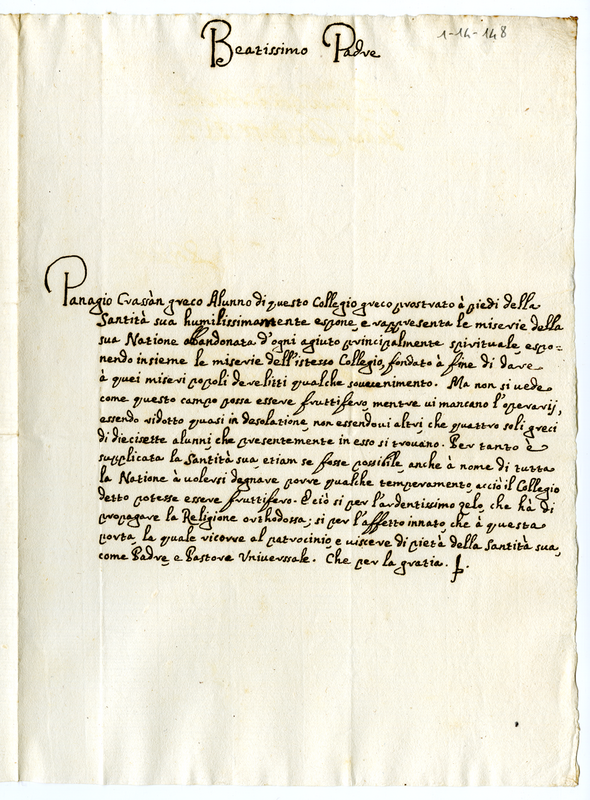 1-14-148
Beatissimo Padre
Panagio Crassàn greco Alunno di questo Collegio greco prostrato à piedi della
Santità sua humilissimamente espone, e rappresenta le miserie della
sua Natione abbandonata d'ogni agiuto principalmente spirituale, espo=
nendo insieme le miserie dell'istesso Collegio, fondato à fine di dare
à quei miseri popoli derelitti qualche souuenimento. Ma non si vede
come questo campo possa essere fruttifero, mentre ui mancano l'operarij,
essendo ridotto quasi in desolatione, non essendoui altri che quattro soli greci
di diecisette alunni, che presentemente in esso si trouano. Per tanto è
supplicata la Santità sua, etiam se fosse possibile, anche à nome di tutta
la Natione à volersi dagnare porre qualche temperamento, acciò il Collegio
detto potesse essere fruttifero. E ciò si per l'ardentissimo zelo, che hà di
propagare la Religione orthodossa; si per l'affetto innato, che à questa
porta, la quale ricorre al patrocinio, e viscere di pietà della Santità sua,
come Padre, e Pastore Universsale. Che per la gratia.